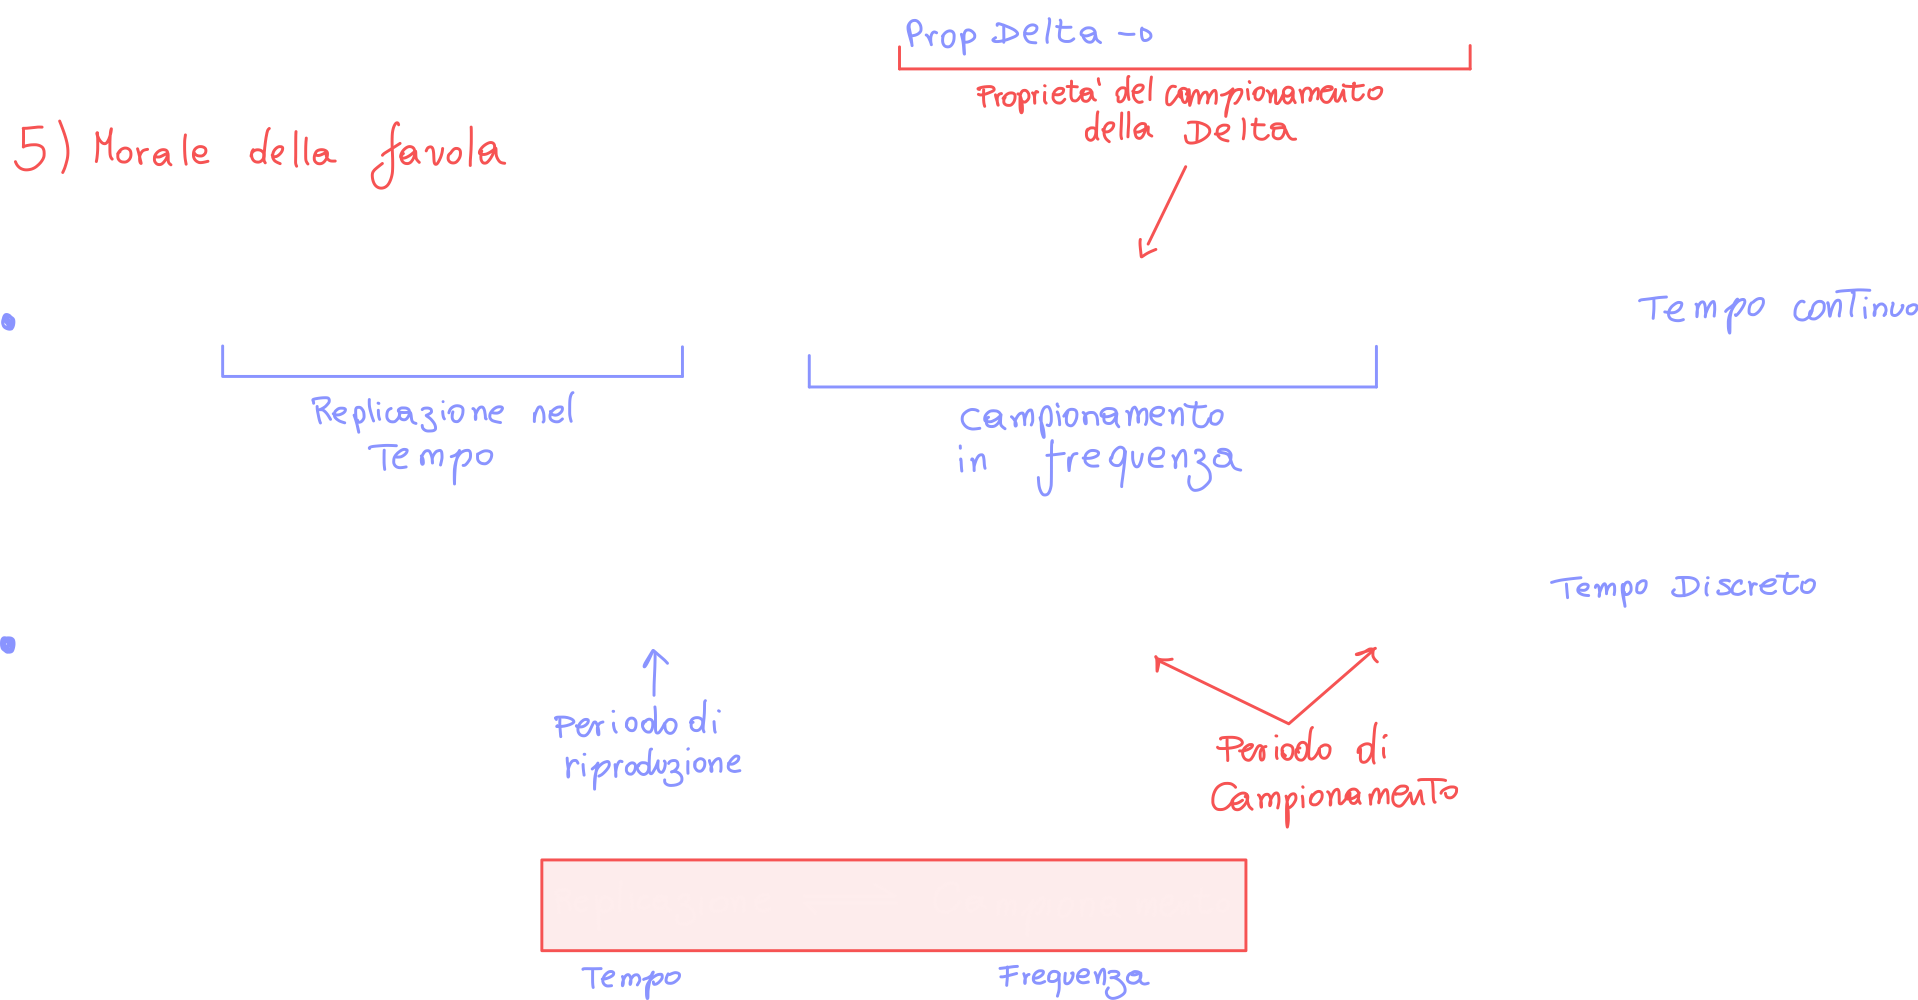 Prop Delta
Proprietà del campionamento
della Delta
5) Morale della favola
Tempo continuo
Replicazione nel
Tempo
Campionamento
in frequenza
Tempo Discreto
Periodo di
riproduzione
Periodo di
Campionamento
Tempo
Frequenza